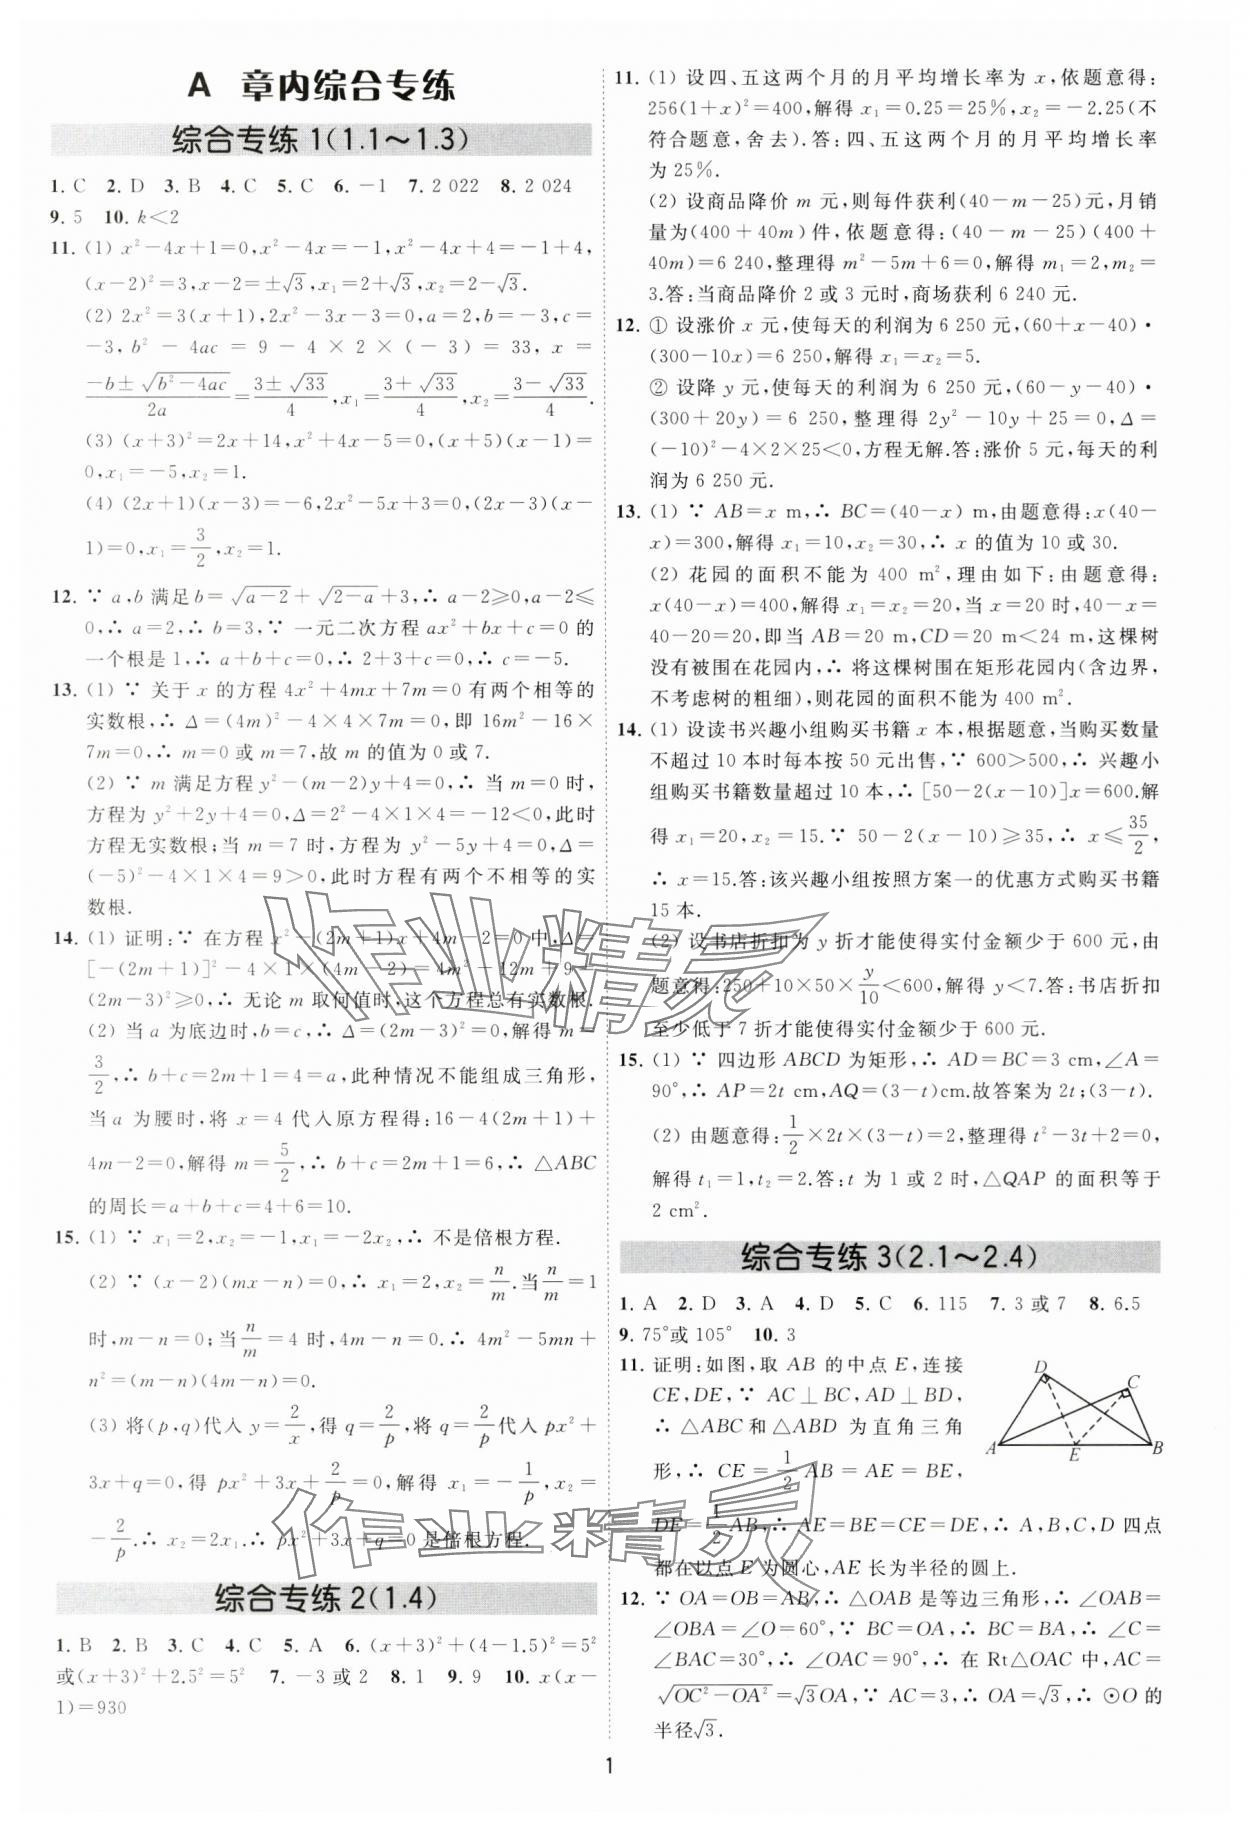 A 章内综合专练
综合专练 1(1.1～1.3)
1. C 2. D 3. B 4. C 5. C 6. －1 7. 2 022 8. 2 024
9. 5 10. k＜2
11. (1) x²－4x＋1＝0,x²－4x＝－1,x²－4x＋4＝－1＋4,
(x－2)²＝3,x－2＝±√3,x₁＝2＋√3,x₂＝2－√3.
(2) 2x²＝3(x＋1),2x²－3x－3＝0,a＝2,b＝－3,c＝
－3,b²－4ac＝9－4×2×(－3)＝33,x＝
(－b±√(b²－4ac))/2a＝(3±√33)/4,x₁＝(3＋√33)/4,x₂＝(3－√33)/4.
(3) (x＋3)²＝2x＋14,x²＋4x－5＝0,(x＋5)(x－1)＝
0,x₁＝－5,x₂＝1.
(4) (2x＋1)(x－3)＝－6,2x²－5x＋3＝0,(2x－3)(x－
1)＝0,x₁＝3/2,x₂＝1.
12. ∵ a,b 满足 b＝√(a－2)＋√(2－a)＋3,∴ a－2≥0,a－2≤
0,∴ a＝2,∴ b＝3,∵ 一元二次方程 ax²＋bx＋c＝0 的
一个根是 1,∴ a＋b＋c＝0,∴ 2＋3＋c＝0,∴ c＝－5.
13. (1) ∵ 关于 x 的方程 4x²＋4mx＋7m＝0 有两个相等的
实数根,∴ Δ＝(4m)²－4×4×7m＝0,即 16m²－16×
7m＝0,∴ m＝0 或 m＝7,故 m 的值为 0 或 7.
(2) ∵ m 满足方程 y²－(m－2)y＋4＝0,∴ 当 m＝0 时,
方程为 y²＋2y＋4＝0,Δ＝2²－4×1×4＝－12＜0,此时
方程无实数根;当 m＝7 时,方程为 y²－5y＋4＝0,Δ＝
(－5)²－4×1×4＝9＞0,此时方程有两个不相等的实
数根.
14. (1) 证明:∵ 在方程 x²－(2m＋1)x＋4m－2＝0 中,Δ＝
[－(2m＋1)]²－4×1×(4m－2)＝4m²－12m＋9＝
(2m－3)²≥0,∴ 无论 m 取何值时,这个方程总有实数根.
(2) 当 a 为底边时,b＝c,∴ Δ＝(2m－3)²＝0,解得 m＝
3/2,∴ b＋c＝2m＋1＝4＝a,此种情况不能组成三角形,
当 a 为腰时,将 x＝4 代入原方程得:16－4(2m＋1)＋
4m－2＝0,解得 m＝5/2,∴ b＋c＝2m＋1＝6,∴ △ABC
的周长＝a＋b＋c＝4＋6＝10.
15. (1) ∵ x₁＝2,x₂＝－1,x₁＝－2x₂,∴ 不是倍根方程.
(2) ∵ (x－2)(mx－n)＝0,∴ x₁＝2,x₂＝n/m.当n/m＝1
时,m－n＝0;当n/m＝4 时,4m－n＝0.∴ 4m²－5mn＋
n²＝(m－n)(4m－n)＝0.
(3) 将(p,q)代入 y＝2/x,得 q＝2/p,将 q＝2/p代入 px²＋
3x＋q＝0,得 px²＋3x＋2/p＝0,解得 x₁＝－1/p,x₂＝
－2/p.∴ x₂＝2x₁.∴ px²＋3x＋q＝0 是倍根方程.
综合专练 2(1.4)
1. B 2. B 3. C 4. C 5. A 6. (x＋3)²＋(4－1.5)²＝5²
或(x＋3)²＋2.5²＝5² 7. －3 或 2 8. 1 9. 9 10. x(x－
1)＝930
11. (1) 设四、五这两个月的月平均增长率为 x,依题意得:
256(1＋x)²＝400,解得 x₁＝0.25＝25%,x₂＝－2.25(不
符合题意,舍去).答:四、五这两个月的月平均增长率
为 25%.
(2) 设商品降价 m 元,则每件获利(40－m－25)元,月销
量为(400＋40m)件,依题意得:(40－m－25)(400＋
40m)＝6 240,整理得 m²－5m＋6＝0,解得 m₁＝2,m₂＝
3.答:当商品降价 2 或 3 元时,商场获利 6 240 元.
12. ① 设涨价 x 元,使每天的利润为 6 250 元,(60＋x－40)·
(300－10x)＝6 250,解得 x₁＝x₂＝5.
② 设降 y 元,使每天的利润为 6 250 元,(60－y－40)·
(300＋20y)＝6 250,整理得 2y²－10y＋25＝0,Δ＝
(－10)²－4×2×25＜0,方程无解.答:涨价 5 元,每天的利
润为 6 250 元.
13. (1) ∵ AB＝x m,∴ BC＝(40－x) m,由题意得:x(40－
x)＝300,解得 x₁＝10,x₂＝30,∴ x 的值为 10 或 30.
(2) 花园的面积不能为 400 m²,理由如下:由题意得:
x(40－x)＝400,解得 x₁＝x₂＝20,当 x＝20 时,40－x＝
40－20＝20,即当 AB＝20 m,CD＝20 m＜24 m,这棵树
没有被围在花园内,∴ 将这棵树围在矩形花园内(含边界,
不考虑树的粗细),则花园的面积不能为 400 m².
14. (1) 设读书兴趣小组购买书籍 x 本,根据题意,当购买数量
不超过 10 本时每本按 50 元出售,∵ 600＞500,∴ 兴趣小
组购买书籍数量超过 10 本,∴ [50－2(x－10)]x＝600.解
得 x₁＝20,x₂＝15.∵ 50－2(x－10)≥35,∴ x≤35/2,
∴ x＝15.答:该兴趣小组按照方案一的优惠方式购买书籍
15 本.
(2) 设书店折扣为 y 折才能使得实付金额少于 600 元,由
题意得:250＋10×50×y/10＜600,解得 y＜7.答:书店折扣
至少低于 7 折才能使得实付金额少于 600 元.
15. (1) ∵ 四边形 ABCD 为矩形,∴ AD＝BC＝3 cm,∠A＝
90°,∴ AP＝2t cm,AQ＝(3－t)cm.故答案为 2t;(3－t).
(2) 由题意得:1/2×2t×(3－t)＝2,整理得 t²－3t＋2＝0,
解得 t₁＝1,t₂＝2.答:t 为 1 或 2 时,△QAP 的面积等于
2 cm².
综合专练 3(2.1～2.4)
1. A 2. D 3. A 4. D 5. C 6. 115 7. 3 或 7 8. 6.5
9. 75°或 105° 10. 3
11. 证明:如图,取 AB 的中点 E,连接
CE,DE,∵ AC⊥BC,AD⊥BD,
∴ △ABC 和 △ABD 为直角三角
形,∴ CE＝1/2AB＝AE＝BE,
DE＝1/2AB,∴ AE＝BE＝CE＝DE,∴ A,B,C,D 四点
都在以点 E 为圆心,AE 长为半径的圆上.
D
C
A
E
B
12. ∵ OA＝OB＝AB,∴ △OAB 是等边三角形,∴ ∠OAB＝
∠OBA＝∠O＝60°,∵ BC＝OA,∴ BC＝BA,∴ ∠C＝
∠BAC＝30°,∴ ∠OAC＝90°,∴ 在 Rt△OAC 中,AC＝
√(OC²－OA²)＝√3OA,∵ AC＝3,∴ OA＝√3,∴ ⊙O 的
半径√3.
1
作业精灵
作业精灵